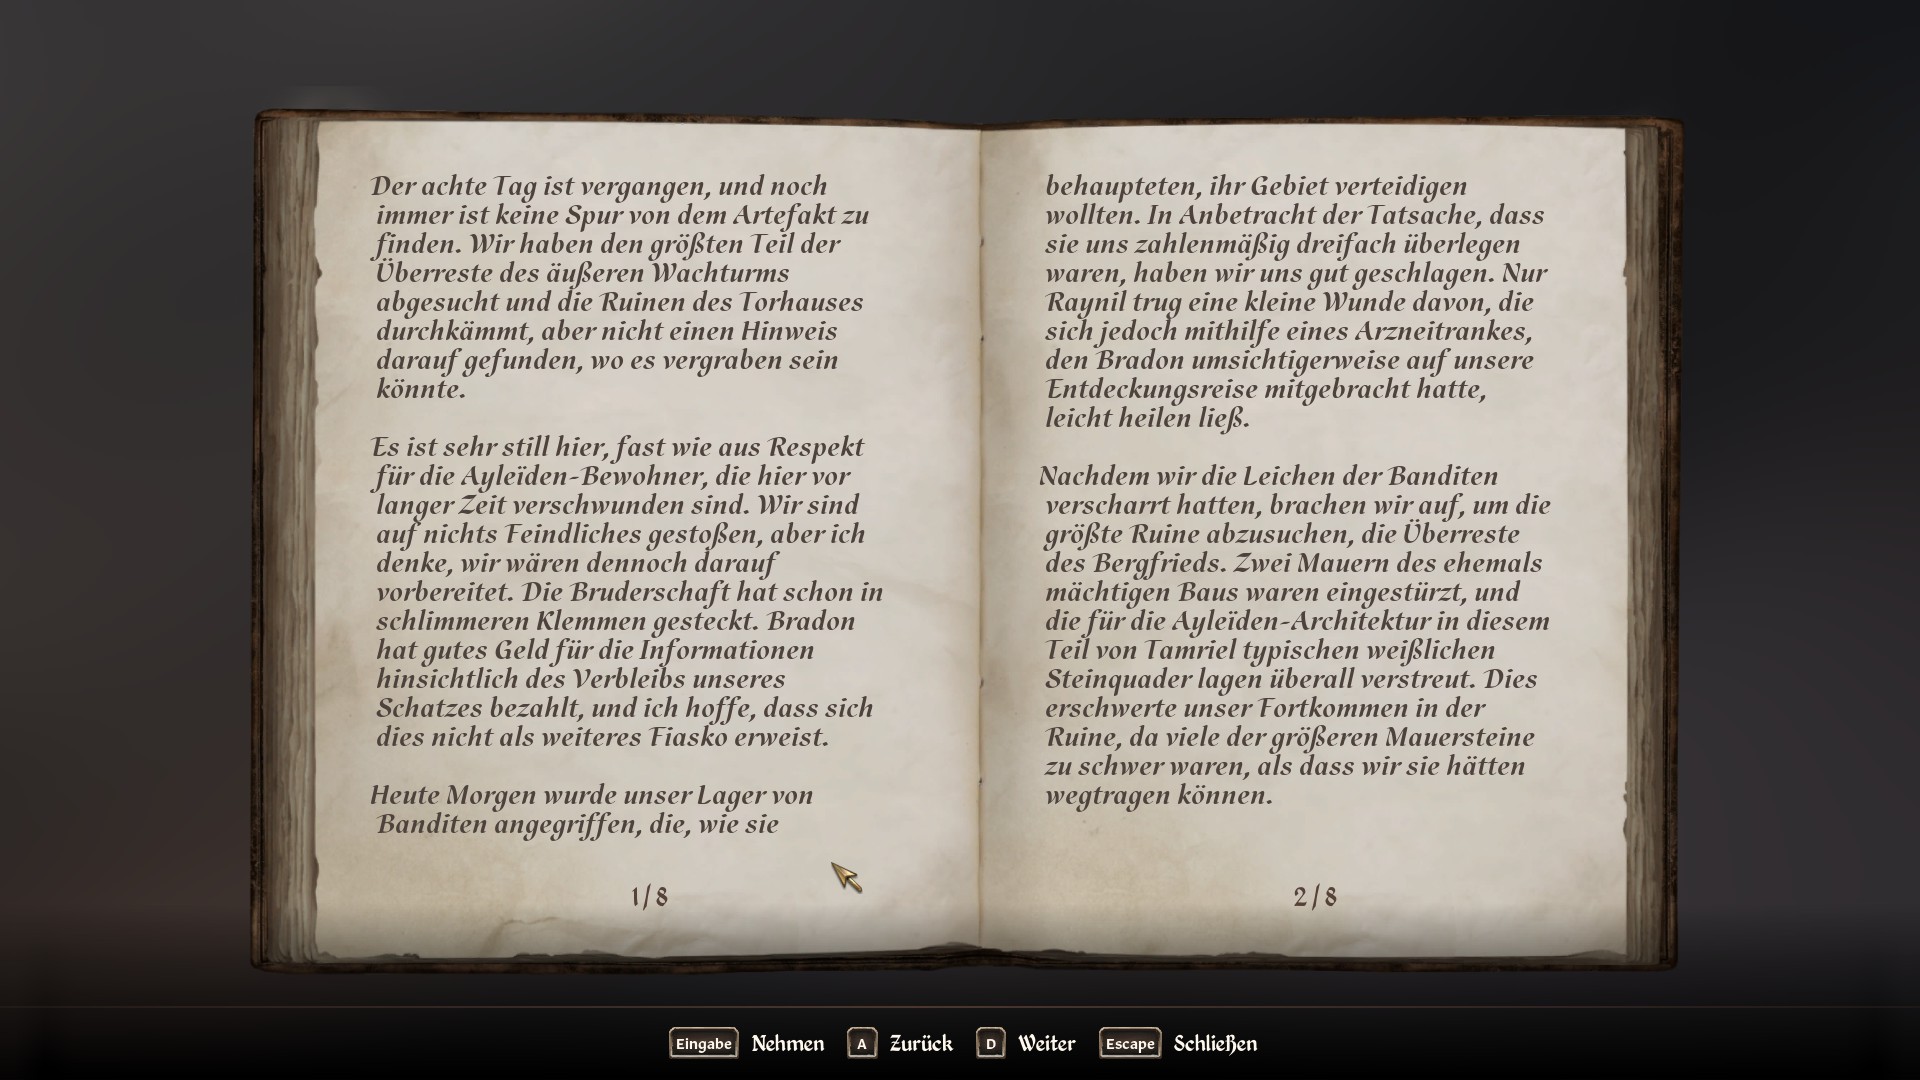 Der achte Tag ist vergangen, und noch
immer ist keine Spur von dem Artefakt zu
finden. Wir haben den größten Teil der
Überreste des äußeren Wachturms
abgesucht und die Ruinen des Torhauses
durchkämmt, aber nicht einen Hinweis
darauf gefunden, wo es vergraben sein
könnte.
Es ist sehr still hier, fast wie aus Respekt
für die Ayleïden-Bewohner, die hier vor
langer Zeit verschwunden sind. Wir sind
auf nichts Feindliches gestoßen, aber ich
denke, wir wären dennoch darauf
vorbereitet. Die Bruderschaft hat schon in
schlimmeren Klemmen gesteckt. Bradon
hat gutes Geld für die Informationen
hinsichtlich des Verbleibs unseres
Schatzes bezahlt, und ich hoffe, dass sich
dies nicht als weiteres Fiasko erweist.
Heute Morgen wurde unser Lager von
Banditen angegriffen, die, wie sie
1/8
behaupteten, ihr Gebiet verteidigen
wollten. In Anbetracht der Tatsache, dass
sie uns zahlenmäßig dreifach überlegen
waren, haben wir uns gut geschlagen. Nur
Raynil trug eine kleine Wunde davon, die
sich jedoch mithilfe eines Arzneitrankes,
den Bradon umsichtigerweise auf unsere
Entdeckungsreise mitgebracht hatte,
leicht heilen ließ.
Nachdem wir die Leichen der Banditen
verscharrt hatten, brachen wir auf, um die
größte Ruine abzusuchen, die Überreste
des Bergfrieds. Zwei Mauern des ehemals
mächtigen Baus waren eingestürzt, und
die für die Ayleïden-Architektur in diesem
Teil von Tamriel typischen weißlichen
Steinquader lagen überall verstreut. Dies
erschwerte unser Fortkommen in der
Ruine, da viele der größeren Mauersteine
zu schwer waren, als dass wir sie hätten
wegtragen können.
2/8
Eingabe Nehmen A Zurück D Weiter Escape Schließen